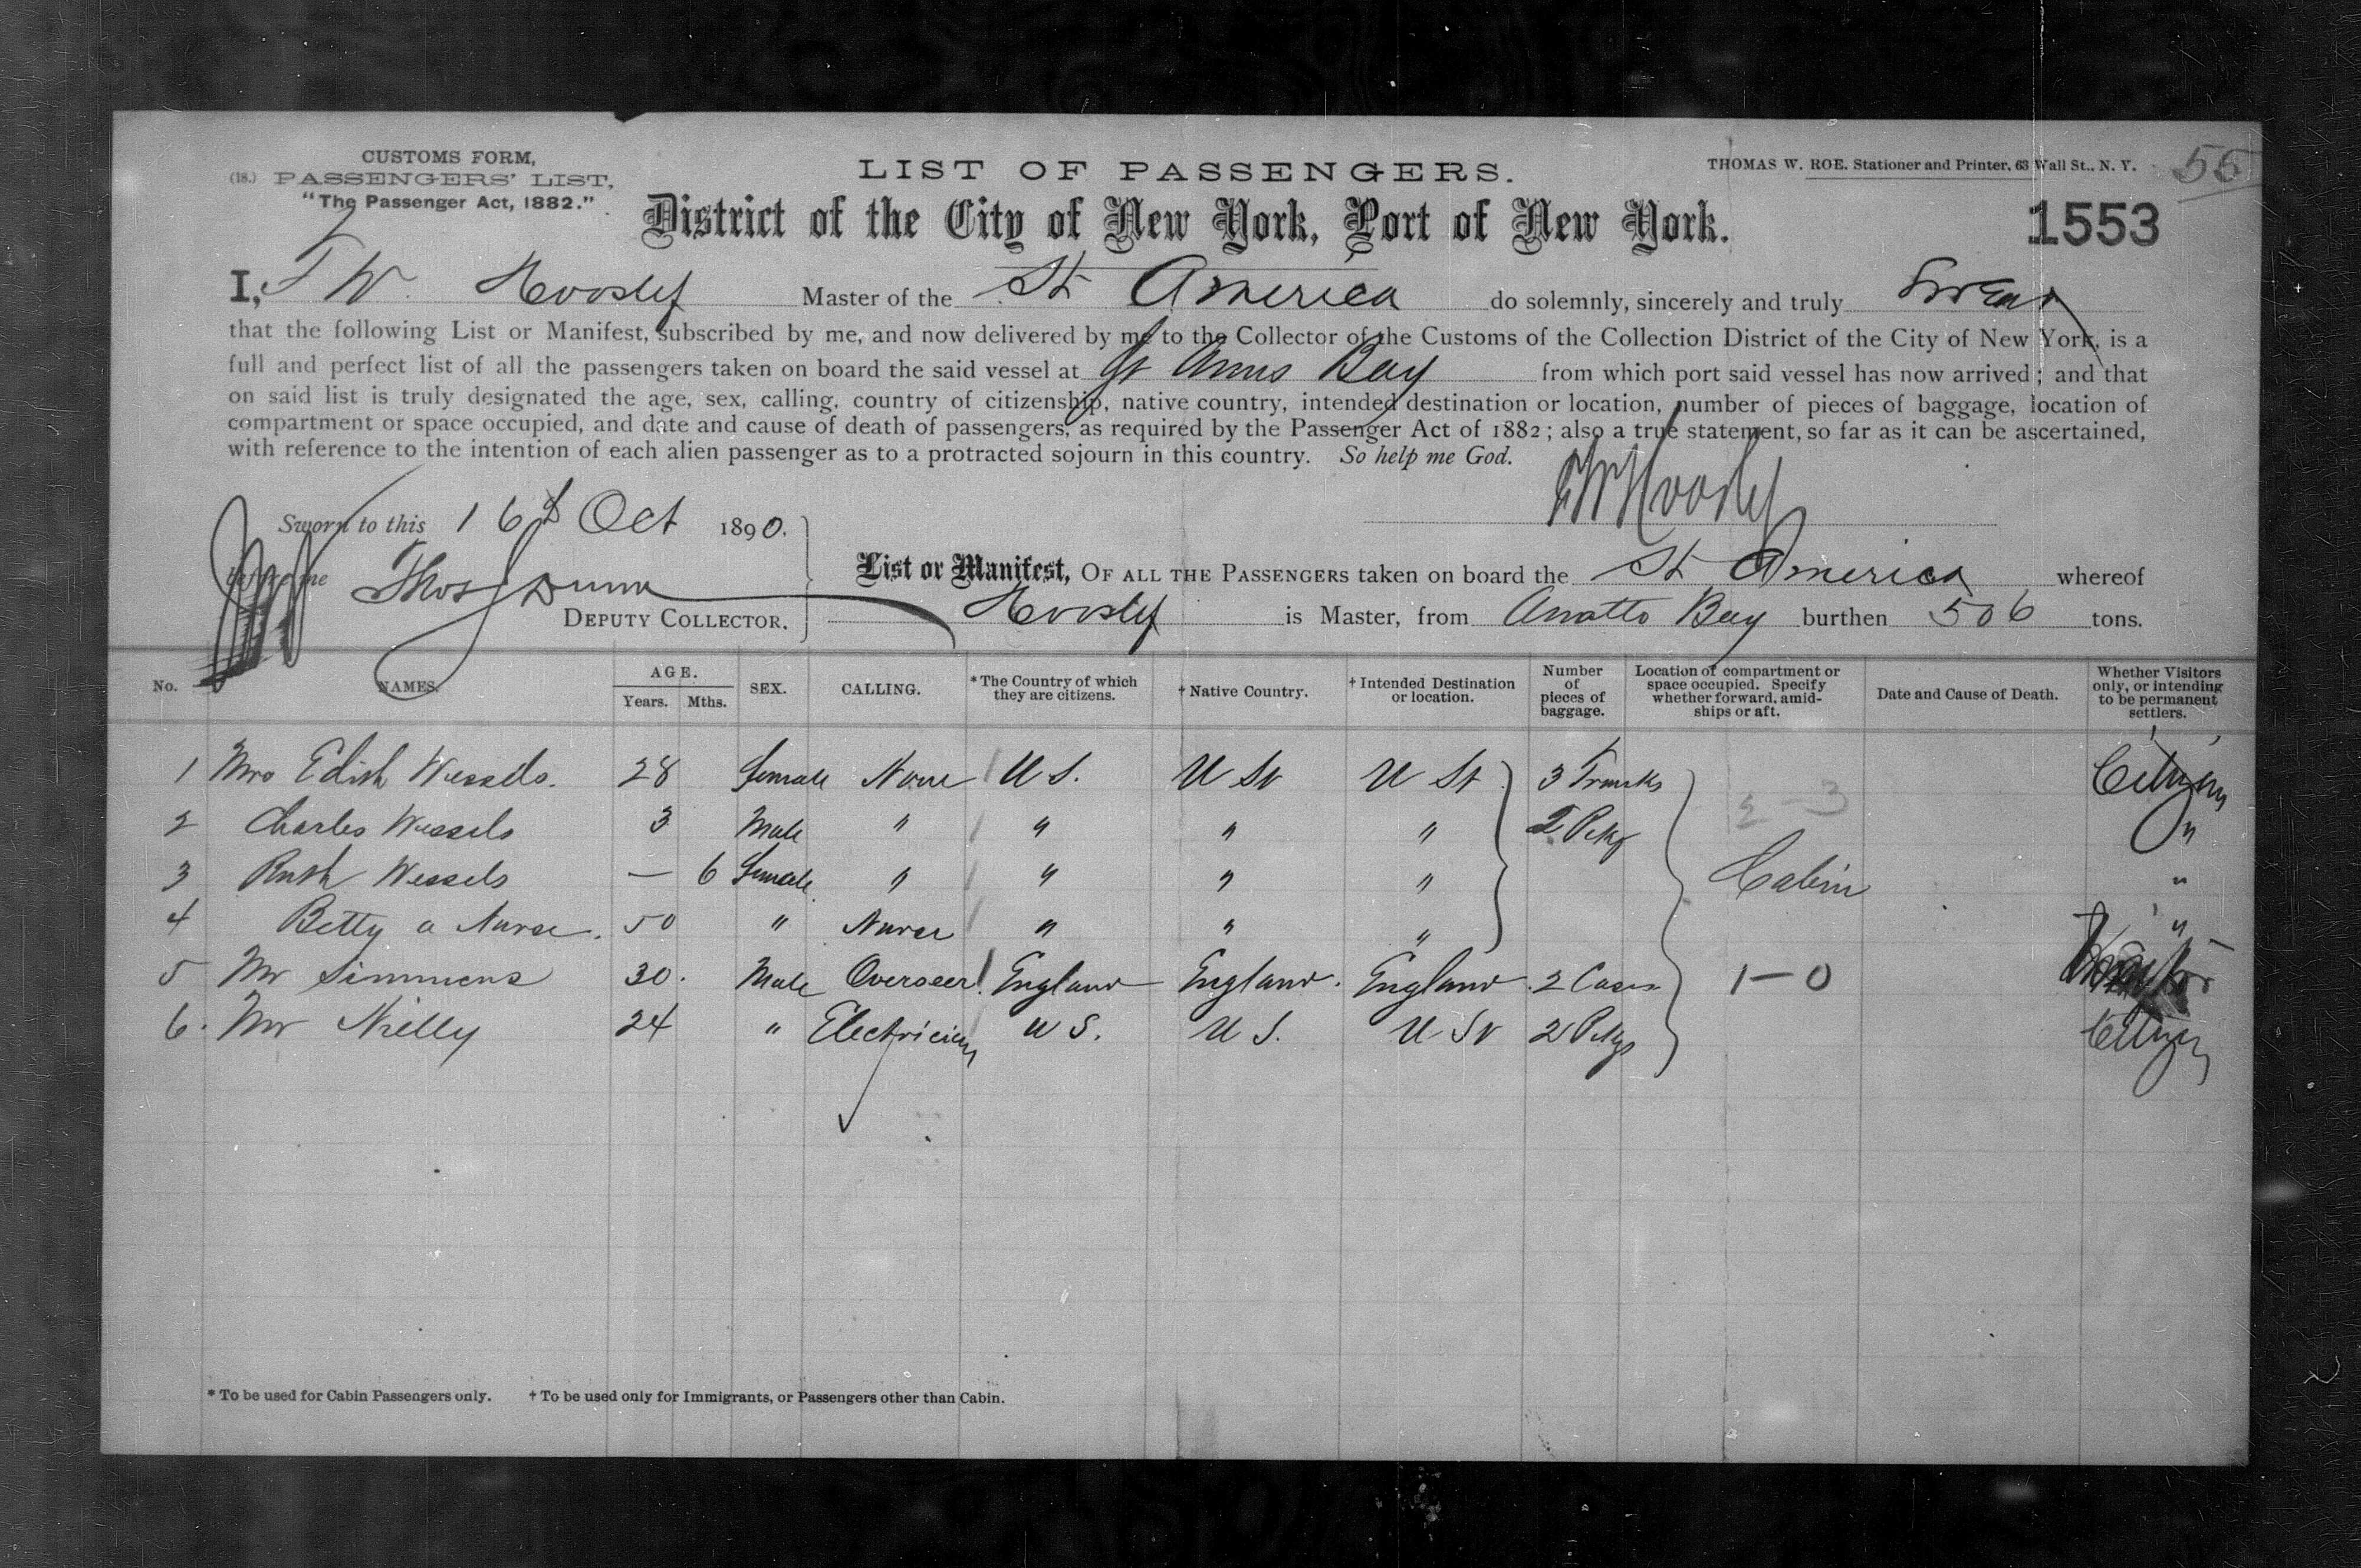 CUSTOMS FORM,
(18.) PASSENGERS' LIST,
"The Passenger Act, 1882."
LIST OF PASSENGERS.
THOMAS W. ROE. Stationer and Printer, 63 Wall St., N. Y.
55
District of the City of New York, Port of New York.
1553
I, W. Master of the St America do solemnly, sincerely and truly Swear
that the following List or Manifest, subscribed by me, and now delivered by me to the Collector of the Customs of the Collection District of the City of New York, is a
full and perfect list of all the passengers taken on board the said vessel at St Anns Bay from which port said vessel has now arrived; and that
on said list is truly designated the age, sex, calling, country of citizenship, native country, intended destination or location, number of pieces of baggage, location of
compartment or space occupied, and date and cause of death of passengers, as required by the Passenger Act of 1882; also a true statement, so far as it can be ascertained,
with reference to the intention of each alien passenger as to a protracted sojourn in this country. So help me God.
Sworn to this 16 Oct 1890.
before me Thos Dunn
DEPUTY COLLECTOR.
List or Manifest, OF ALL THE PASSENGERS taken on board the St America whereof
is Master, from Anatto Bay burthen 506 tons.
No. NAMES. AGE. Years. Mths. SEX. CALLING. * The Country of which they are citizens. † Native Country. † Intended Destination or location. Number of pieces of baggage. Location of compartment or space occupied. Specify whether forward, amidships or aft. Date and Cause of Death. Whether Visitors only, or intending to be permanent settlers.
1 Mrs Edith Wessels. 28 Female None U S. U St U St 3 Trunks Citizen
2 Charles Wessels 3 Male " " " " 2 Pckg "
3 Ruth Wessels — 6 Female " " " " Cabin "
4 Betty a Nurse. 50 " Nurse " " " "
5 Mr Simmens 30. Male Overseer England England. England 2 Cases 1-0
6. Mr Nielly 24 " Electrician U S. U S. U St 2 Pckgs Citizen
* To be used for Cabin Passengers only. † To be used only for Immigrants, or Passengers other than Cabin.